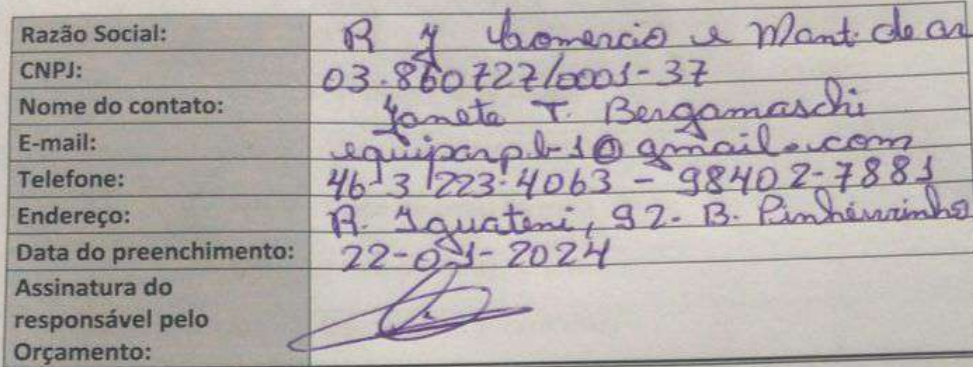 Razão Social: R Y Comercio e Mant. de ar
CNPJ: 03.860727/0001-37
Nome do contato: Janete T. Bergamaschi
E-mail: equiparp.b-10gmail.com
Telefone: 46-3 223-4063 - 98402-7881
Endereço: R. Iguatemi, 92- B. Pinheirinho
Data do preenchimento: 22-01-2024
Assinatura do
responsável pelo
Orçamento: